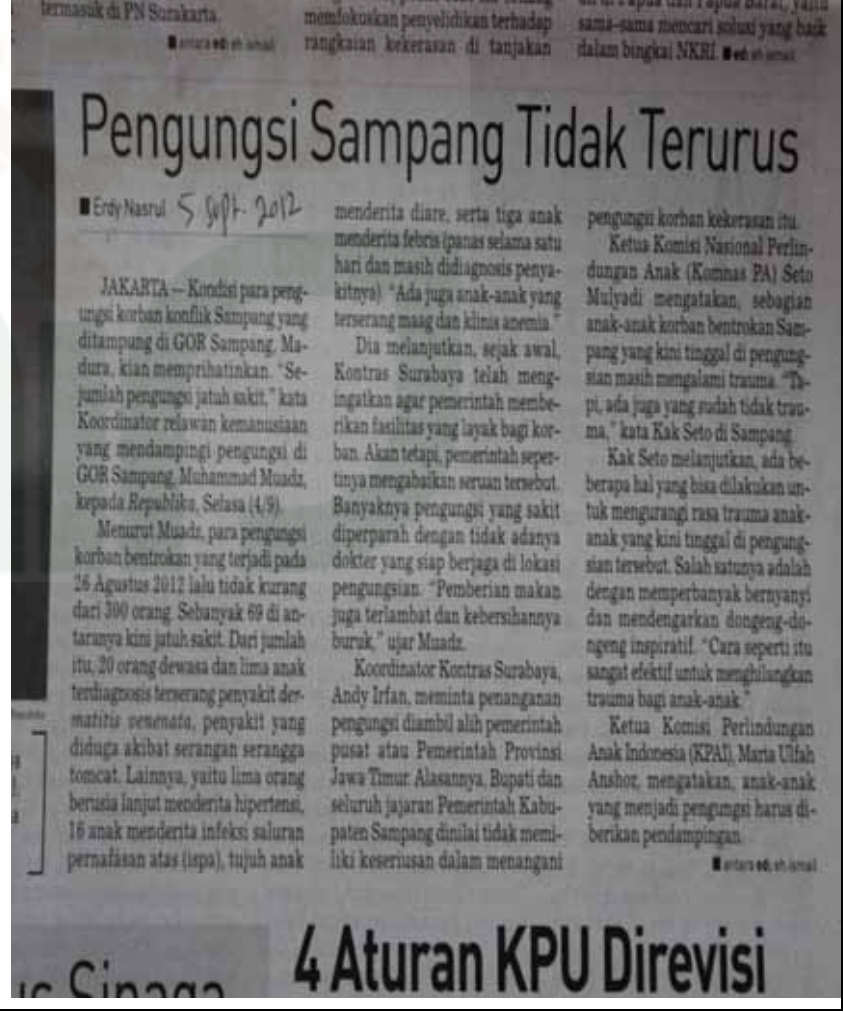 termasuk di PN Surakarta.
■ antara ed: eh ismail
memfokuskan penyelidikan terhadap
rangkaian kekerasan di tanjakan
sama-sama mencari solusi yang baik
dalam bingkai NKRI. ■ ed: eh ismail
Pengungsi Sampang Tidak Terurus
■ Erdy Nasrul 5 Sept. 2012
JAKARTA — Kondisi para peng-
ungsi korban konflik Sampang yang
ditampung di GOR Sampang, Ma-
dura, kian memprihatinkan. "Se-
jumlah pengungsi jatuh sakit," kata
Koordinator relawan kemanusiaan
yang mendampingi pengungsi di
GOR Sampang, Muhammad Muadz,
kepada Republika, Selasa (4/9).
Menurut Muadz, para pengungsi
korban bentrokan yang terjadi pada
26 Agustus 2012 lalu tidak kurang
dari 300 orang. Sebanyak 69 di an-
taranya kini jatuh sakit. Dari jumlah
itu, 20 orang dewasa dan lima anak
terdiagnosis terserang penyakit der-
matitis venenata, penyakit yang
diduga akibat serangan serangga
tomcat. Lainnya, yaitu lima orang
berusia lanjut menderita hipertensi,
16 anak menderita infeksi saluran
pernafasan atas (ispa), tujuh anak
menderita diare, serta tiga anak
menderita febris (panas selama satu
hari dan masih didiagnosis penya-
kitnya). "Ada juga anak-anak yang
terserang maag dan klinis anemia."
Dia melanjutkan, sejak awal,
Kontras Surabaya telah meng-
ingatkan agar pemerintah membe-
rikan fasilitas yang layak bagi kor-
ban. Akan tetapi, pemerintah seper-
tinya mengabaikan seruan tersebut.
Banyaknya pengungsi yang sakit
diperparah dengan tidak adanya
dokter yang siap berjaga di lokasi
pengungsian. "Pemberian makan
juga terlambat dan kebersihannya
buruk," ujar Muadz.
Koordinator Kontras Surabaya,
Andy Irfan, meminta penanganan
pengungsi diambil alih pemerintah
pusat atau Pemerintah Provinsi
Jawa Timur. Alasannya, Bupati dan
seluruh jajaran Pemerintah Kabu-
paten Sampang dinilai tidak memi-
liki keseriusan dalam menangani
pengungsi korban kekerasan itu.
Ketua Komisi Nasional Perlin-
dungan Anak (Komnas PA) Seto
Mulyadi mengatakan, sebagian
anak-anak korban bentrokan Sam-
pang yang kini tinggal di pengung-
sian masih mengalami trauma. "Ta-
pi, ada juga yang sudah tidak trau-
ma," kata Kak Seto di Sampang.
Kak Seto melanjutkan, ada be-
berapa hal yang bisa dilakukan un-
tuk mengurangi rasa trauma anak-
anak yang kini tinggal di pengung-
sian tersebut. Salah satunya adalah
dengan memperbanyak bernyanyi
dan mendengarkan dongeng-do-
ngeng inspiratif. "Cara seperti itu
sangat efektif untuk menghilangkan
trauma bagi anak-anak."
Ketua Komisi Perlindungan
Anak Indonesia (KPAI), Maria Ulfah
Anshor, mengatakan, anak-anak
yang menjadi pengungsi harus di-
berikan pendampingan.
■ antara ed: eh ismail
Sinaga
4 Aturan KPU Direvisi